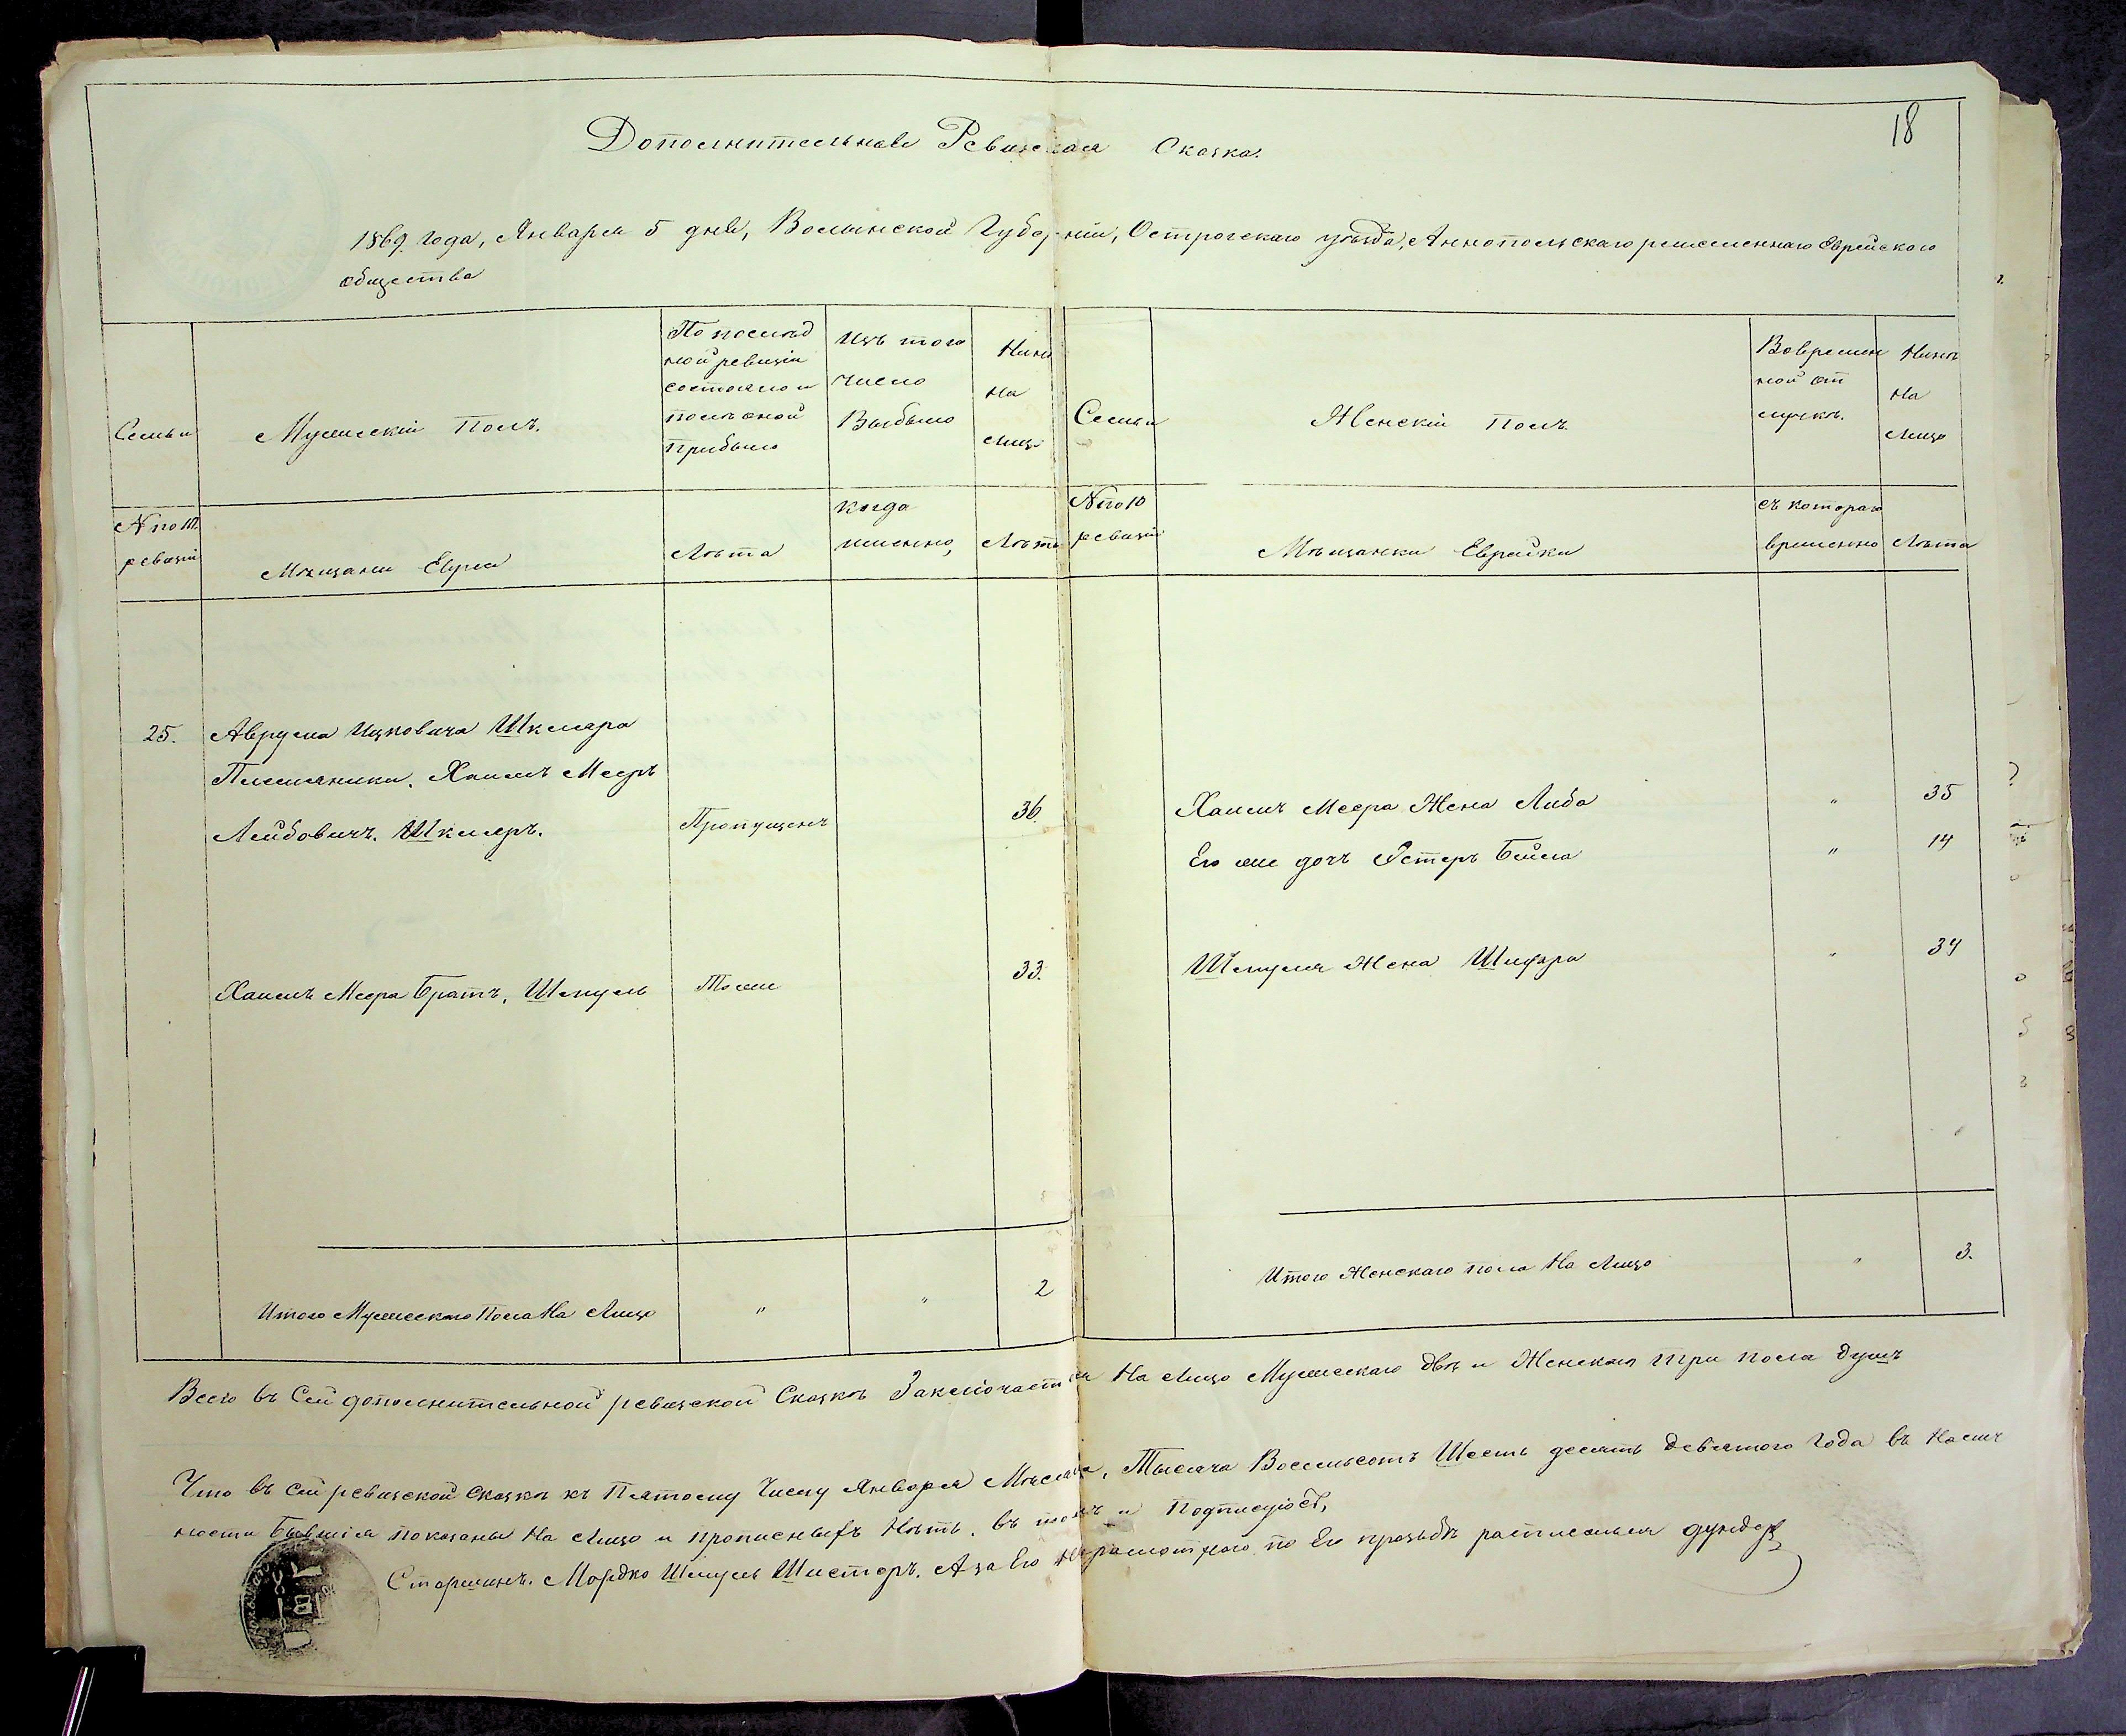 18
Дополнительная Ревизская Сказка.
1869 года, Января 5 дня, Волынской Губерніи, Острогскаго уѣзда, Аннопольскаго ремесленнаго Еврейскаго
общества
Семьи
Мужескій Полъ.
По послѣд
ной ревизіи
состояло и
послѣ оной
прибыло
Изъ того
число
Выбыло
Нынѣ
на
Лицо
Семьи
Женскій Полъ.
Во времен
ной от
лучкѣ.
Нынѣ
на
Лицо
№ по 10
ревизіи
Мѣщане Евреи
Лѣта
когда
именно,
Лѣта
№ по 10
ревизіи
Мѣщанки Еврейки
съ котораго
времянно
Лѣта
25. Аврума Ицковича Шкляра
Племянники. Хаимъ Мееръ
Лейбовичъ. Шкляръ. Пропущенъ 36.
Хаимъ Меера Жена Либа " 35
Его же дочь Эстеръ Бейла " 14
Хаимъ Меера Братъ, Шмуль Тоже 33.
Шмуля Жена Шифра " 34
Итого Мужескаго Пола На Лицо " " 2
Итого Женскаго пола На Лицо " 3.
Всего въ Сей дополнительной ревизской Сказкѣ Заключается На Лицо Мужескаго двѣ и Женскаго три пола душъ
Что въ сей ревизской сказкѣ къ Пятому Числу Января Мѣсяца, Тысяча Восемьсотъ Шесть десять девятого Года въ Налич
ности бывшія показаны На Лицо и прописныхъ Нѣтъ. въ томъ и Подписуюсь,
Старшинъ. Мордко Шмуль Шистеръ. А за Его неграмотнаго по Его прозьбѣ расписался